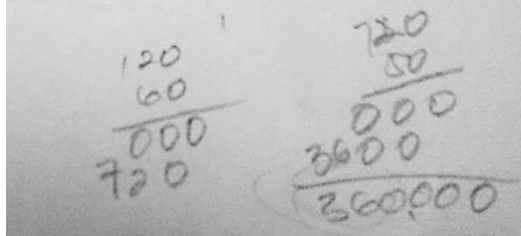 120
60
000
720
720
50
000
3600
360,000